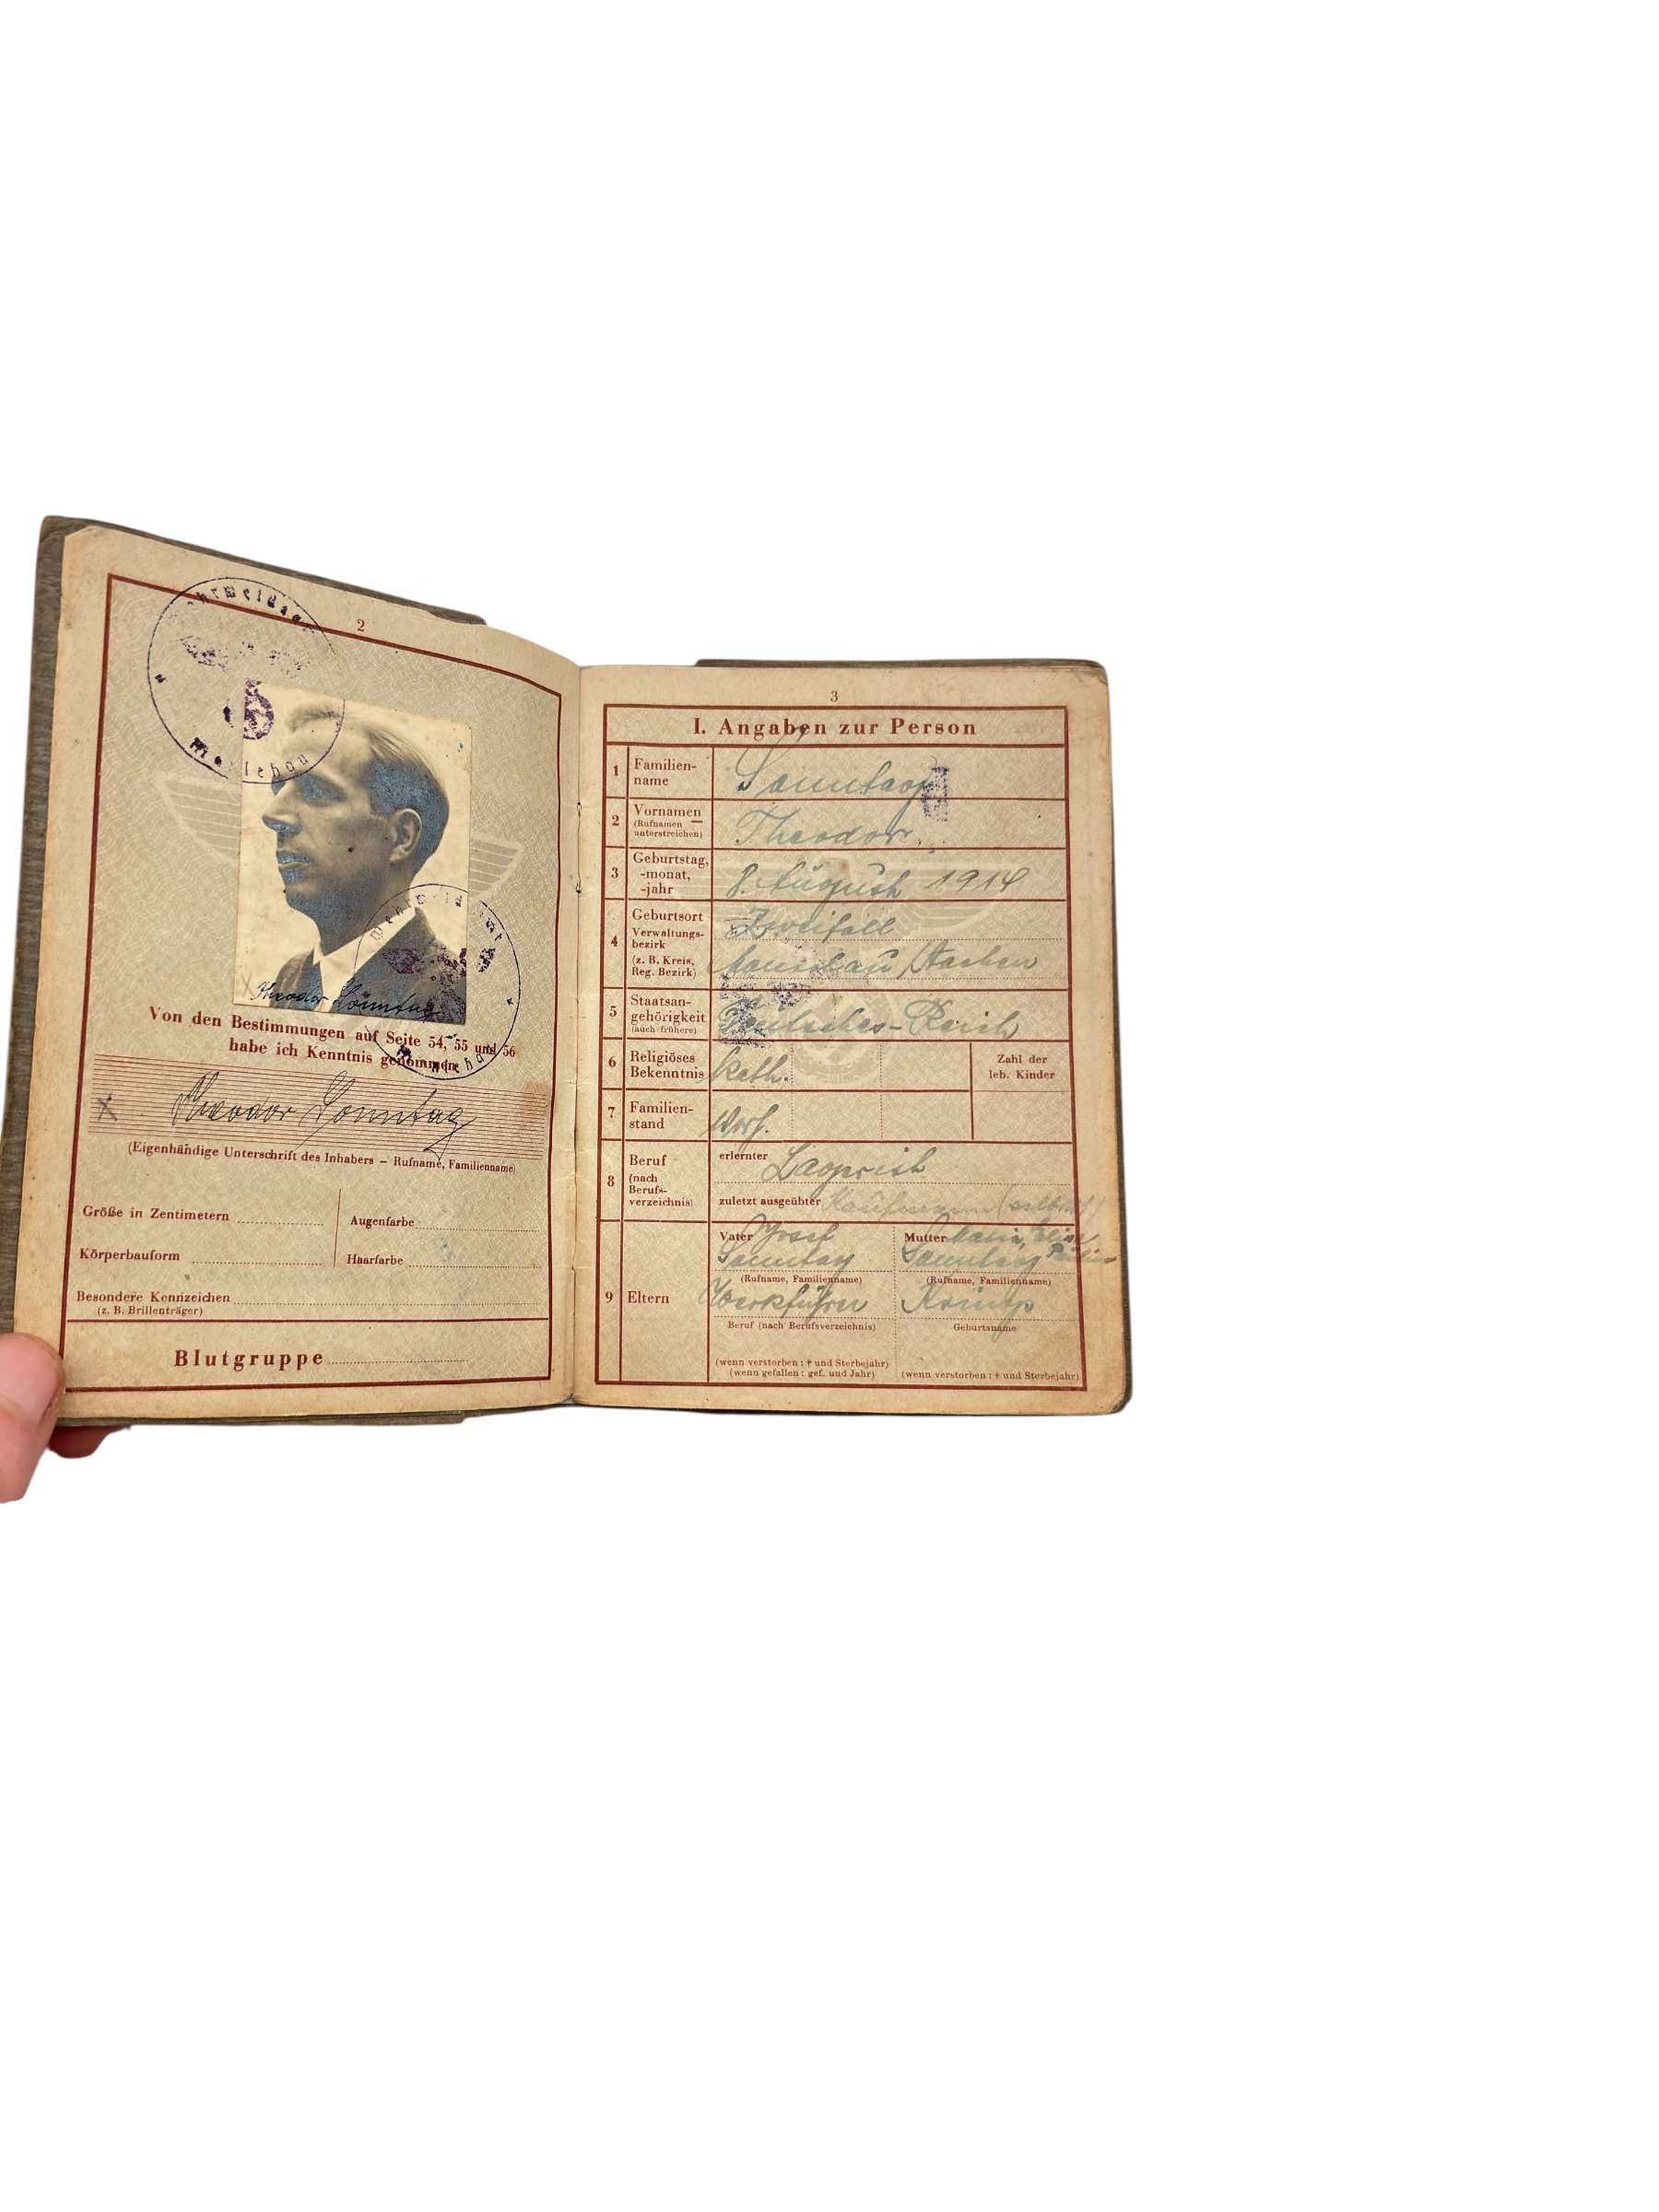 2
Theodor Sonntag
Von den Bestimmungen auf Seite 54, 55 und 56
habe ich Kenntnis genommen
x Theodor Sonntag
(Eigenhändige Unterschrift des Inhabers – Rufname, Familienname)
Größe in Zentimetern
Augenfarbe
Körperbauform
Haarfarbe
Besondere Kennzeichen
(z. B. Brillenträger)
Blutgruppe
3
I. Angaben zur Person
1 Familien-
name
Sonntag
2 Vornamen
(Rufnamen
unterstreichen)
Theodor
3 Geburtstag,
-monat,
-jahr
8. August 1914
4 Geburtsort
Zweifall
Verwaltungs-
bezirk
(z. B. Kreis,
Reg. Bezirk)
Monschau / Aachen
5 Staatsan-
gehörigkeit
(auch frühere)
Deutsches-Reich
6 Religiöses
Bekenntnis
kath.
Zahl der
leb. Kinder
7 Familien-
stand
8 Beruf
(nach
Berufs-
verzeichnis)
erlernter
zuletzt ausgeübter Kaufmann
9 Eltern
Vater Josef
Sonntag
(Rufname, Familienname)
Werkführer
Beruf (nach Berufsverzeichnis)
(wenn verstorben: † und Sterbejahr)
(wenn gefallen: gef. und Jahr)
Mutter Maria,
Sonntag
(Rufname, Familienname)
Geburtsname
(wenn verstorben: † und Sterbejahr)